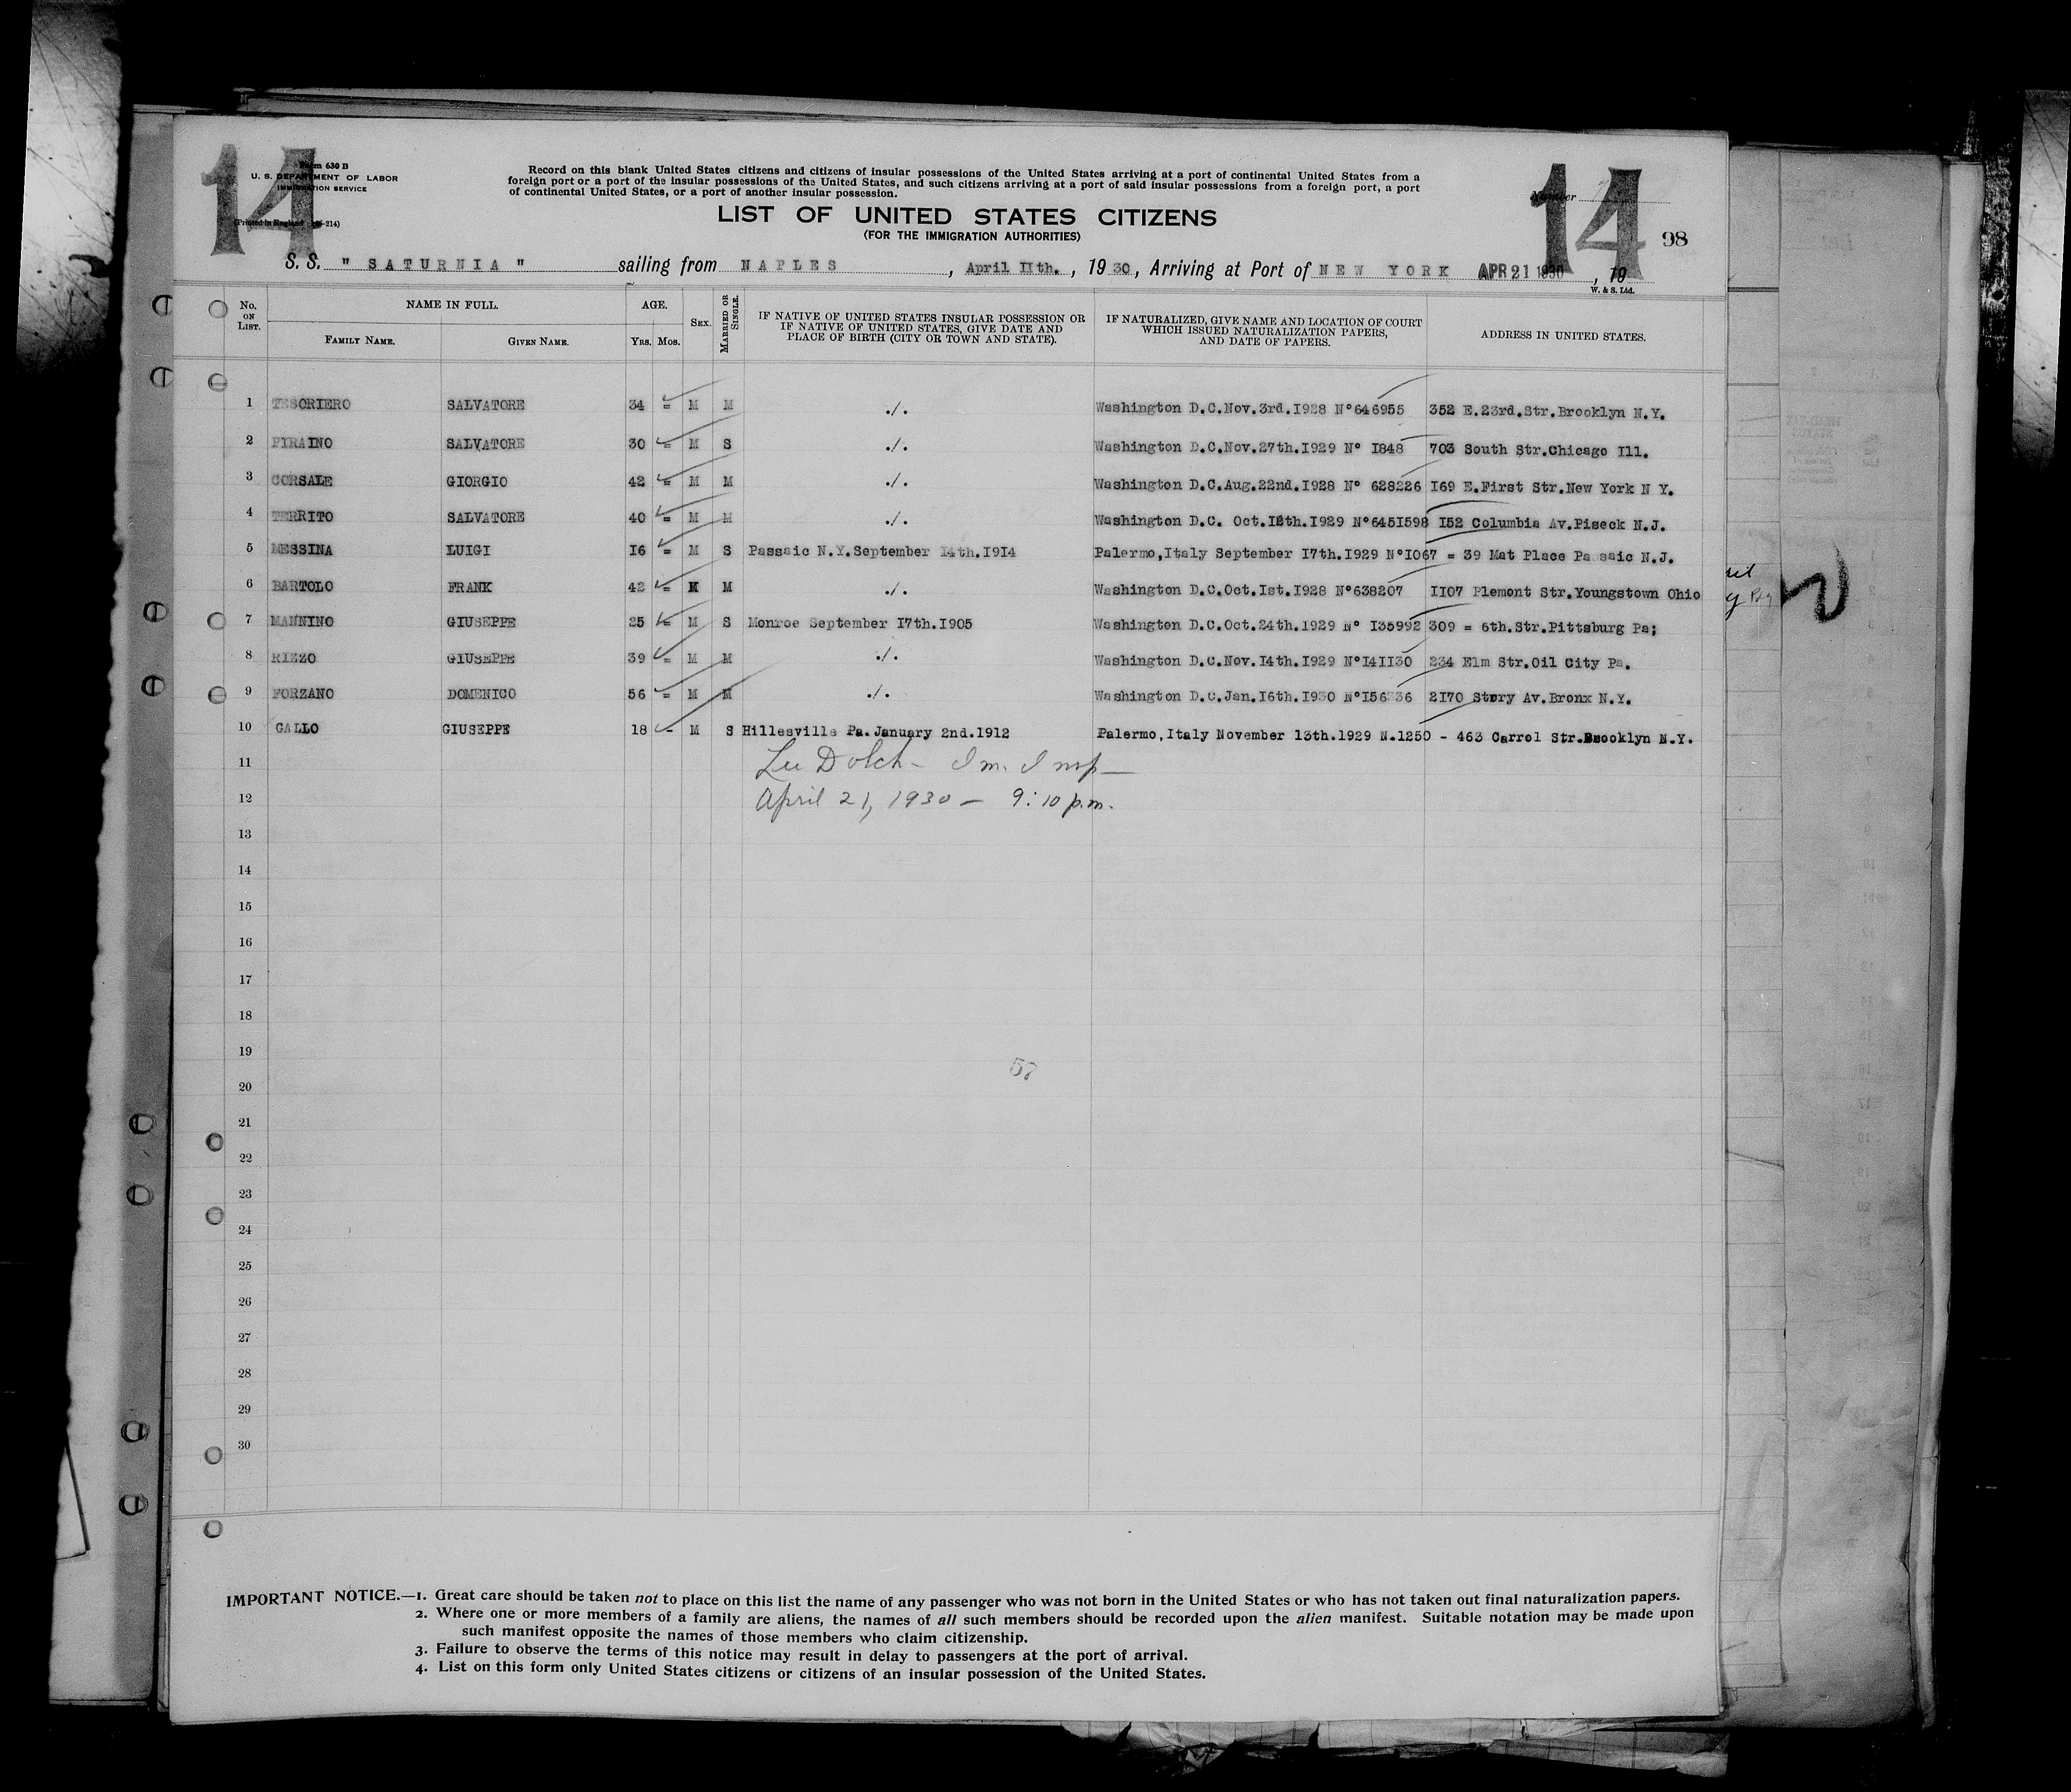 14
Form 630 B
U. S. DEPARTMENT OF LABOR
IMMIGRATION SERVICE
(Printed in England -214)
Record on this blank United States citizens and citizens of insular possessions of the United States arriving at a port of continental United States from a
foreign port or a port of the insular possessions of the United States, and such citizens arriving at a port of said insular possessions from a foreign port, a port
of continental United States, or a port of another insular possession.
LIST OF UNITED STATES CITIZENS
(FOR THE IMMIGRATION AUTHORITIES)
Number
14
98
S. S. " SATURNIA " sailing from NAPLES, April IIth., 1930, Arriving at Port of NEW YORK APR 21 1930, 19
W. & S. Ltd.
No. ON LIST. NAME IN FULL. FAMILY NAME. GIVEN NAME. AGE. YRS. MOS. SEX. MARRIED OR SINGLE. IF NATIVE OF UNITED STATES INSULAR POSSESSION OR IF NATIVE OF UNITED STATES, GIVE DATE AND PLACE OF BIRTH (CITY OR TOWN AND STATE). IF NATURALIZED, GIVE NAME AND LOCATION OF COURT WHICH ISSUED NATURALIZATION PAPERS, AND DATE OF PAPERS. ADDRESS IN UNITED STATES.
1 TESORIERO SALVATORE 34 = M M ./. Washington D.C.Nov.3rd.I928 N°646955 352 E.23rd.Str.Brooklyn N.Y.
2 PIRAINO SALVATORE 30 = M S ./. Washington D.C.Nov.27th.I929 N° I848 703 South Str.Chicago Ill.
3 CORSALE GIORGIO 42 = M M ./. Washington D.C.Aug.22nd.I928 N° 628226 I69 E.First Str.New York N Y.
4 TERRITO SALVATORE 40 = M M ./. Washington D.C. Oct.I2th.I929 N°6451598 I52 Columbia Av.Piseck N.J.
5 MESSINA LUIGI I6 = M S Passaic N.Y.September I4th.I9I4 Palermo,Italy September I7th.I929 N°I067 = 39 Mat Place Passaic N.J.
6 BARTOLO FRANK 42 = M M ./. Washington D.C.Oct.Ist.I928 N°638207 II07 Plemont Str.Youngstown Ohio
7 MANNINO GIUSEPPE 25 = M S Monroe September I7th.I905 Washington D.C.Oct.24th.I929 N° I35992 309 = 6th.Str.Pittsburg Pa;
8 RIZZO GIUSEPPE 39 = M M ./. Washington D.C.Nov.I4th.I929 N°I4II30 234 Elm Str.Oil City Pa.
9 FORZANO DOMENICO 56 = M M ./. Washington D.C.Jan.I6th.I930 2I70 Story Av.Bronx N.Y.
10 GALLO GIUSEPPE 18 - M S Hillesville Pa.January 2nd.1912 Palermo,Italy November 13th.1929 N.1250 - 463 Carrol Str.Brooklyn N.Y.
11 Lee Dolch - Im. Insp
12 April 21, 1930 - 9:10 p.m.
13
14
15
16
17
18
19
57
20
21
22
23
24
25
26
27
28
29
30
IMPORTANT NOTICE.—1. Great care should be taken not to place on this list the name of any passenger who was not born in the United States or who has not taken out final naturalization papers.
2. Where one or more members of a family are aliens, the names of all such members should be recorded upon the alien manifest. Suitable notation may be made upon
such manifest opposite the names of those members who claim citizenship.
3. Failure to observe the terms of this notice may result in delay to passengers at the port of arrival.
4. List on this form only United States citizens or citizens of an insular possession of the United States.